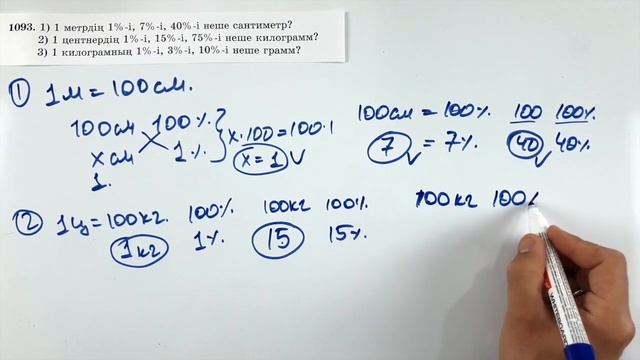 1093. 1) 1 метрдің 1%-і, 7%-і, 40%-і неше сантиметр?
2) 1 центнердің 1%-і, 15%-і, 75%-і неше килограмм?
3) 1 килограмның 1%-і, 3%-і, 10%-і неше грамм?
① 1м = 100см.
100см 100%.
x см 1%.
1.
x·100=100·1
x=1
100см = 100%
7 = 7%
100 100%
40 40%
② 1ц=100кг. 100%
1кг 1%
100кг 100%
15 15%
100кг 100